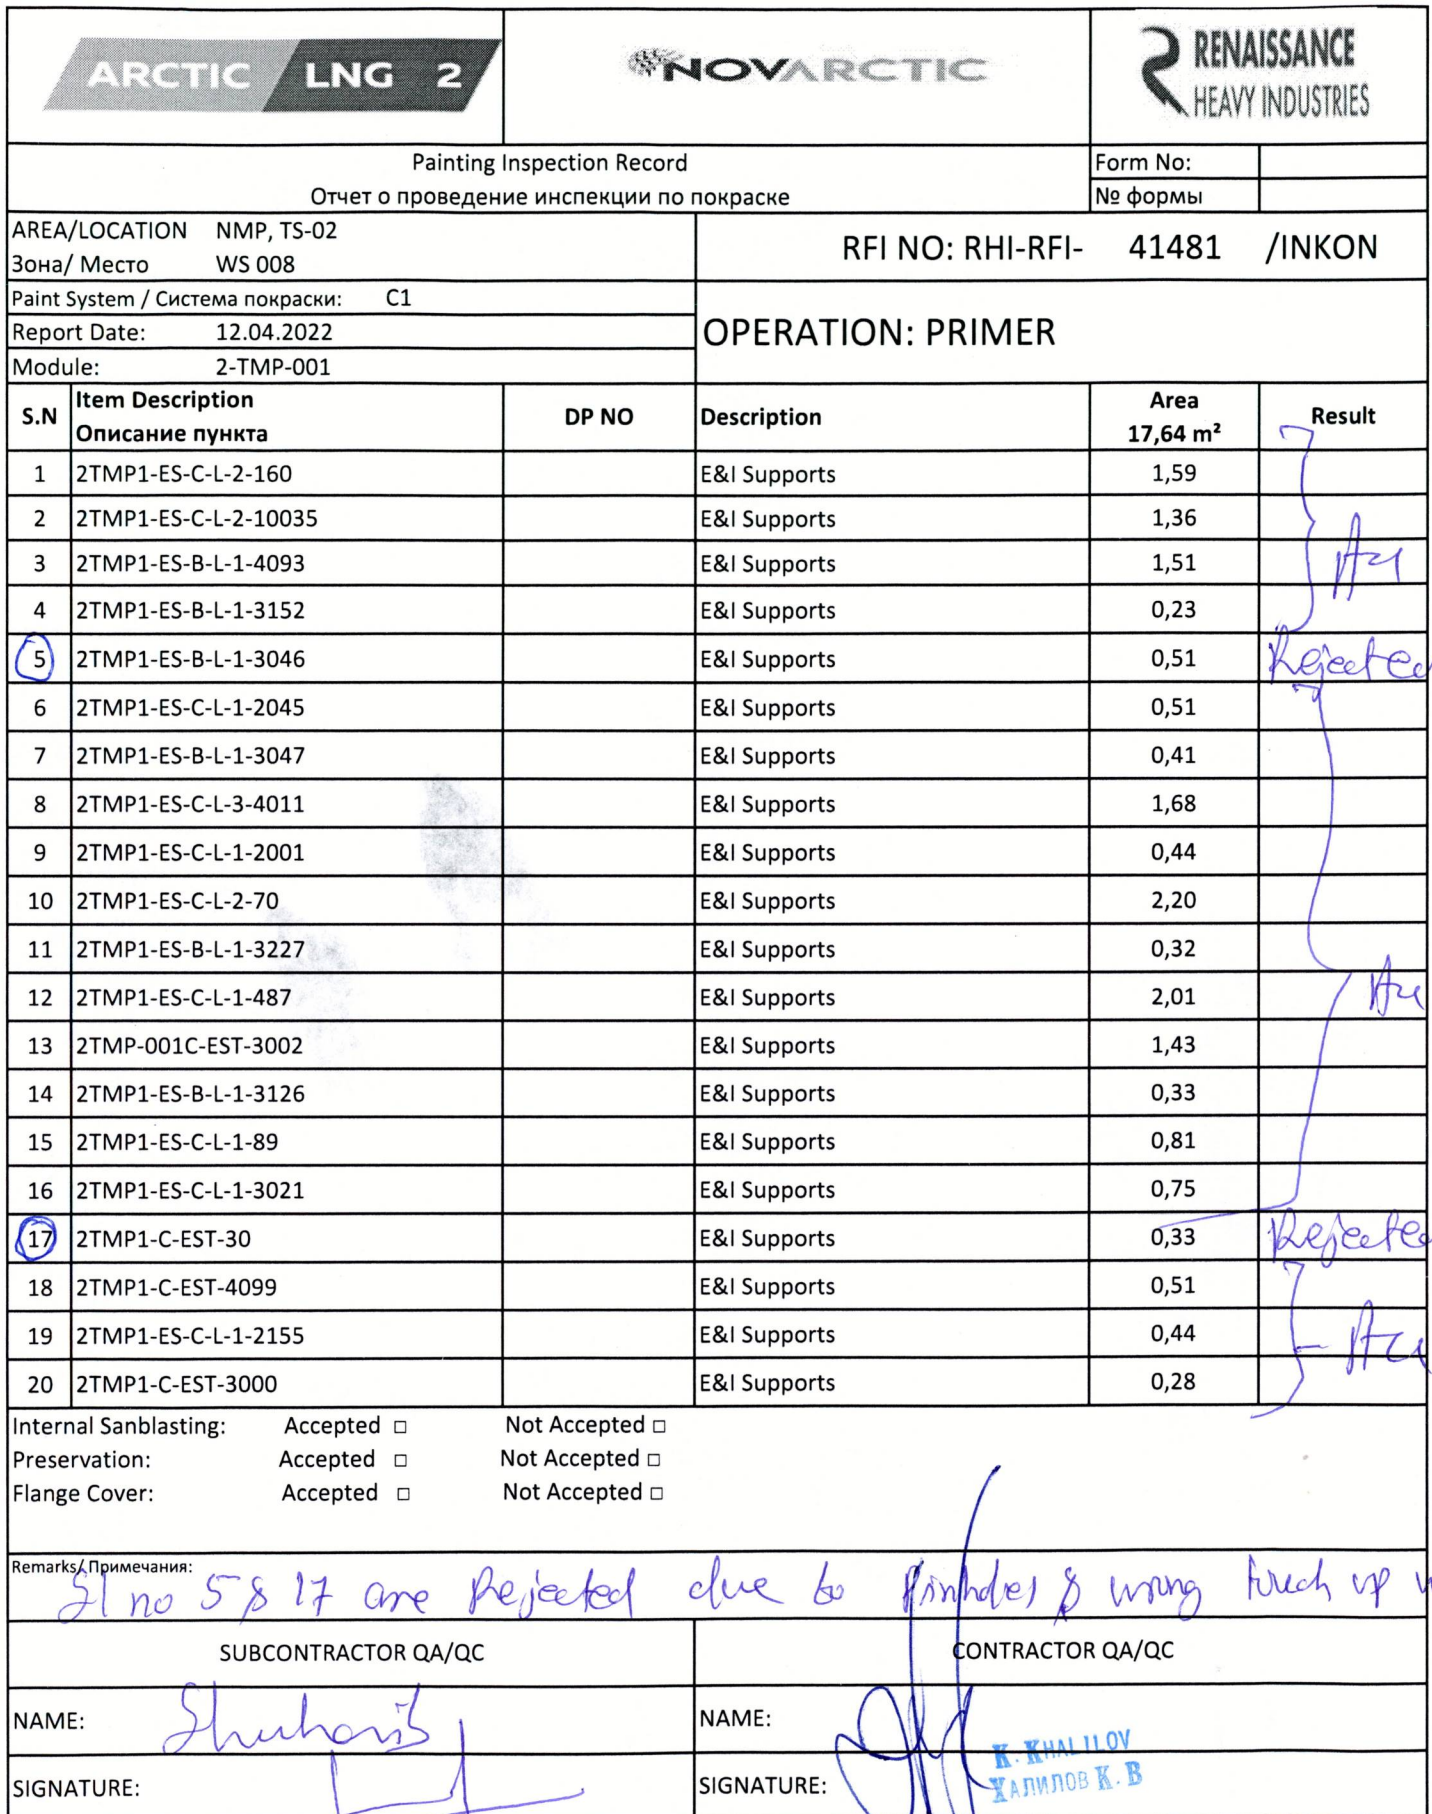 ARCTIC LNG 2
NOVARCTIC
RENAISSANCE
HEAVY INDUSTRIES
Painting Inspection Record
Отчет о проведение инспекции по покраске
Form No:
№ формы
AREA/LOCATION NMP, TS-02
Зона/ Место WS 008
RFI NO: RHI-RFI- 41481 /INKON
Paint System / Система покраски: C1
Report Date: 12.04.2022
Module: 2-TMP-001
OPERATION: PRIMER
S.N Item Description Описание пункта DP NO Description Area 17,64 m² Result
1 2TMP1-ES-C-L-2-160 E&I Supports 1,59
2 2TMP1-ES-C-L-2-10035 E&I Supports 1,36
3 2TMP1-ES-B-L-1-4093 E&I Supports 1,51
4 2TMP1-ES-B-L-1-3152 E&I Supports 0,23
5 2TMP1-ES-B-L-1-3046 E&I Supports 0,51 Rejected
6 2TMP1-ES-C-L-1-2045 E&I Supports 0,51
7 2TMP1-ES-B-L-1-3047 E&I Supports 0,41
8 2TMP1-ES-C-L-3-4011 E&I Supports 1,68
9 2TMP1-ES-C-L-1-2001 E&I Supports 0,44
10 2TMP1-ES-C-L-2-70 E&I Supports 2,20
11 2TMP1-ES-B-L-1-3227 E&I Supports 0,32
12 2TMP1-ES-C-L-1-487 E&I Supports 2,01
13 2TMP-001C-EST-3002 E&I Supports 1,43
14 2TMP1-ES-B-L-1-3126 E&I Supports 0,33
15 2TMP1-ES-C-L-1-89 E&I Supports 0,81
16 2TMP1-ES-C-L-1-3021 E&I Supports 0,75
17 2TMP1-C-EST-30 E&I Supports 0,33 Rejected
18 2TMP1-C-EST-4099 E&I Supports 0,51
19 2TMP1-ES-C-L-1-2155 E&I Supports 0,44
20 2TMP1-C-EST-3000 E&I Supports 0,28
Internal Sanblasting: Accepted □ Not Accepted □
Preservation: Accepted □ Not Accepted □
Flange Cover: Accepted □ Not Accepted □
Remarks/Примечания:
Sl no 5 & 17 are Rejected due to pinholes & wrong touch up
SUBCONTRACTOR QA/QC CONTRACTOR QA/QC
NAME: NAME:
K. KHALILOV
SIGNATURE: SIGNATURE:
ХАЛИЛОВ К. В